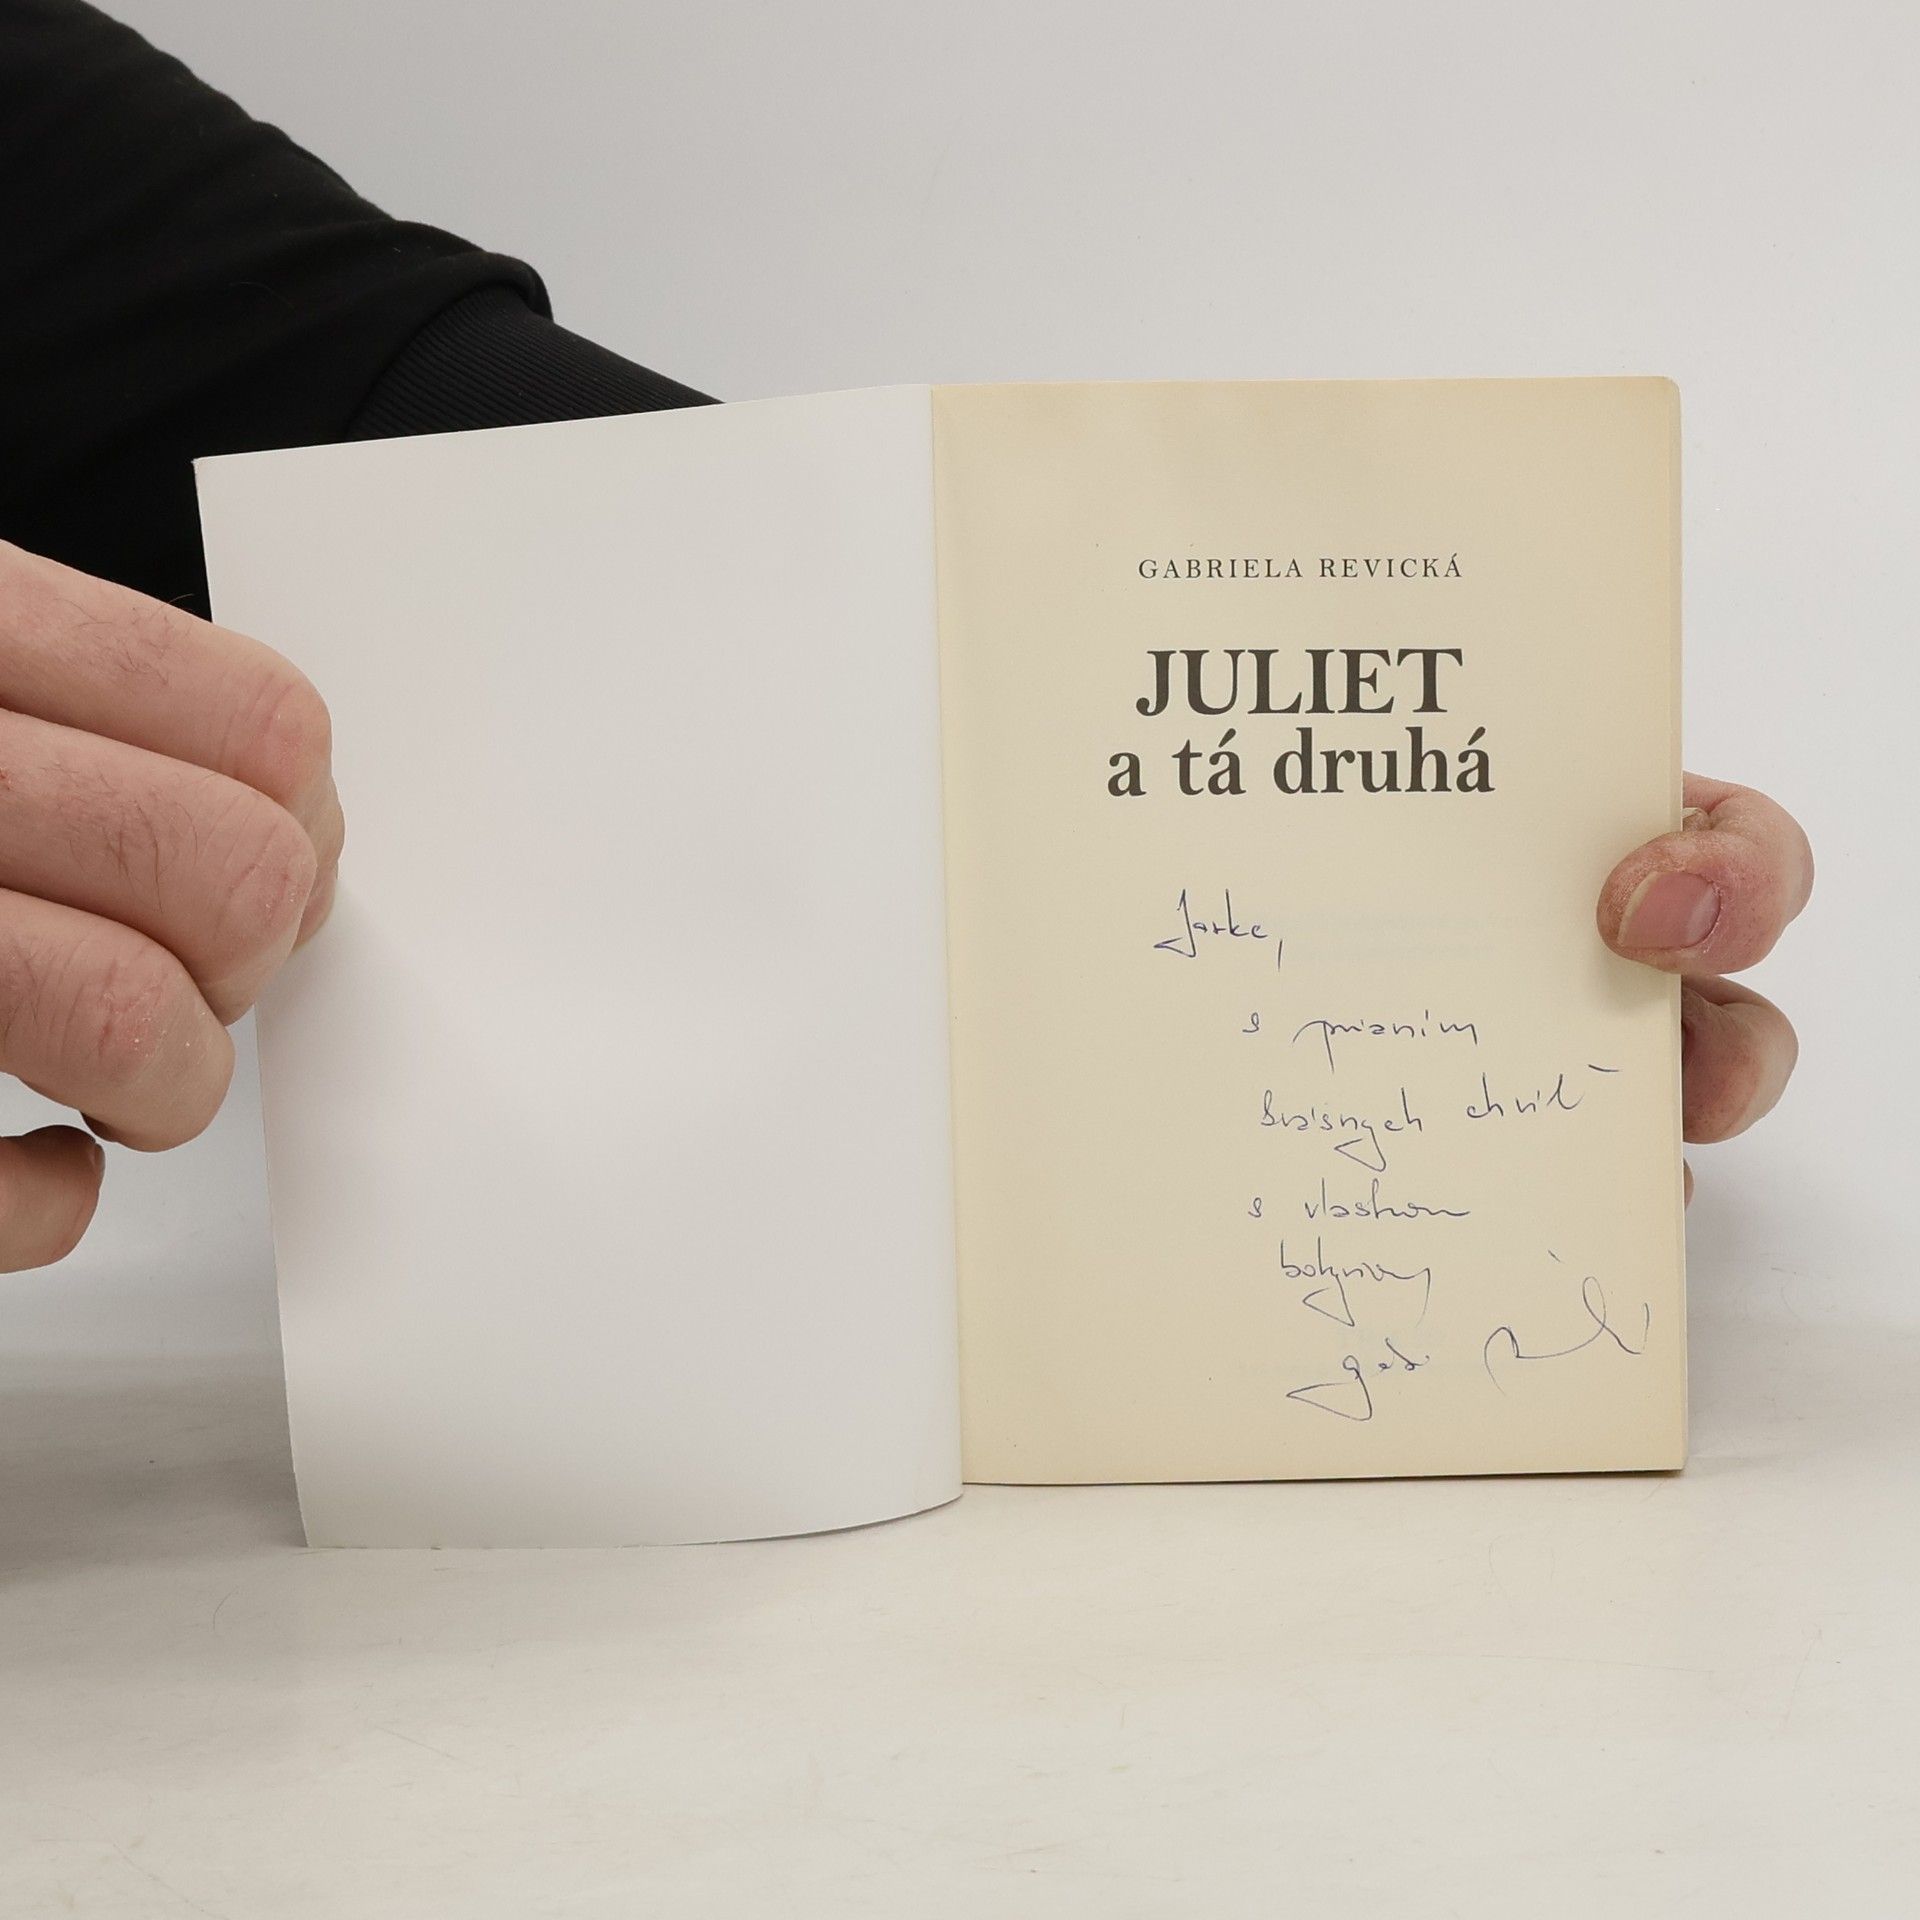 GABRIELA REVICKÁ
JULIET
a tá druhá
Jarke,
s prianím
krásnych chvíľ
s vlastnou
bohyňou
Gabi